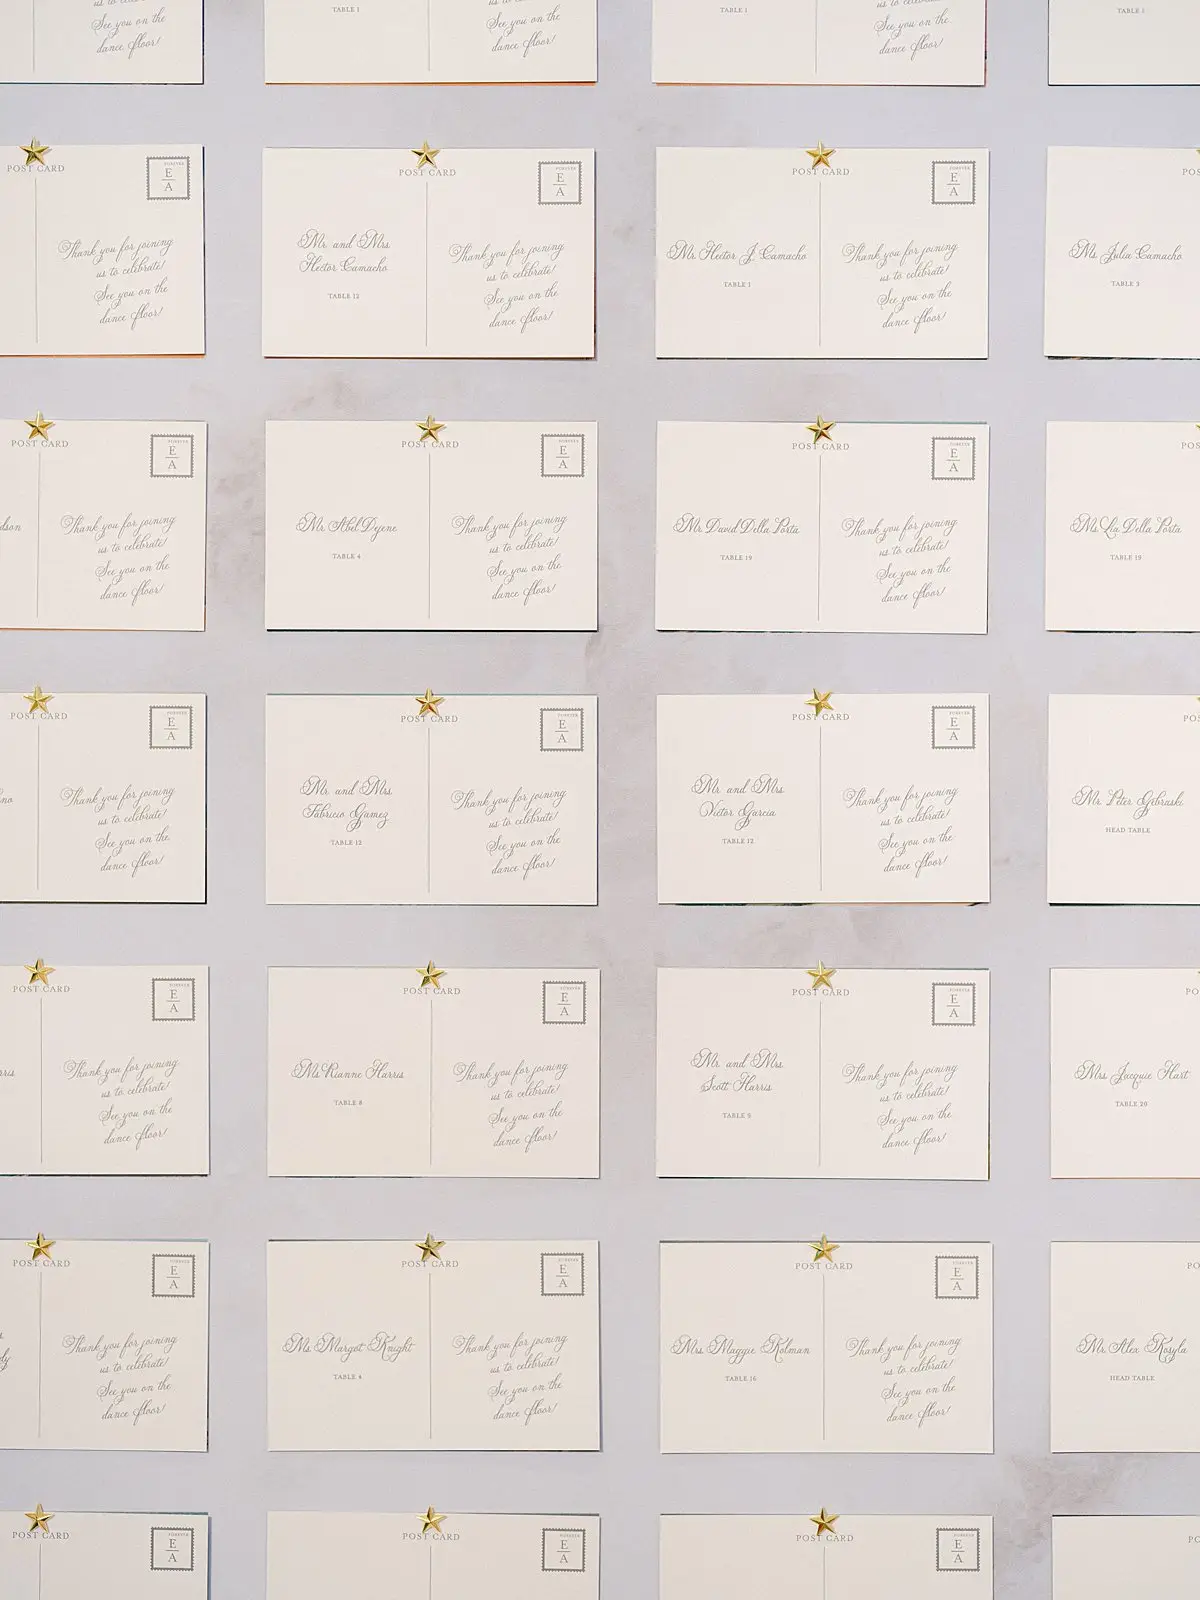 TABLE 1
TABLE 1
us to celebrate!
See you on the
dance floor!
us to celebrate!
See you on the
dance floor!
us to celebrate!
See you on the
dance floor!
POST CARD
FOREVER
E
A
Thank you for joining
us to celebrate!
See you on the
dance floor!
POST CARD
FOREVER
E
A
Mr. and Mrs.
Hector Camacho
TABLE 12
Thank you for joining
us to celebrate!
See you on the
dance floor!
POST CARD
FOREVER
E
A
Mr. Hector J. Camacho
TABLE 1
Thank you for joining
us to celebrate!
See you on the
dance floor!
POS
Ms. Julia Camacho
TABLE 3
POST CARD
FOREVER
E
A
dson
Thank you for joining
us to celebrate!
See you on the
dance floor!
POST CARD
FOREVER
E
A
Mr. Abel Dejene
TABLE 4
Thank you for joining
us to celebrate!
See you on the
dance floor!
POST CARD
FOREVER
E
A
Mr. David Della Porta
TABLE 19
Thank you for joining
us to celebrate!
See you on the
dance floor!
POS
Ms. Lia Della Porta
TABLE 19
POST CARD
FOREVER
E
A
no
Thank you for joining
us to celebrate!
See you on the
dance floor!
POST CARD
FOREVER
E
A
Mr. and Mrs.
Fabricio Gamez
TABLE 12
Thank you for joining
us to celebrate!
See you on the
dance floor!
POST CARD
FOREVER
E
A
Mr. and Mrs.
Victor Garcia
TABLE 12
Thank you for joining
us to celebrate!
See you on the
dance floor!
POS
Mr. Peter Gebraski
HEAD TABLE
POST CARD
FOREVER
E
A
rris
Thank you for joining
us to celebrate!
See you on the
dance floor!
POST CARD
FOREVER
E
A
Ms. Rianne Harris
TABLE 8
Thank you for joining
us to celebrate!
See you on the
dance floor!
POST CARD
FOREVER
E
A
Mr. and Mrs.
Scott Harris
TABLE 9
Thank you for joining
us to celebrate!
See you on the
dance floor!
PO
Mrs. Jacquie Hart
TABLE 20
POST CARD
FOREVER
E
A
Thank you for joining
us to celebrate!
See you on the
dance floor!
POST CARD
FOREVER
E
A
Ms. Margot Knight
TABLE 4
Thank you for joining
us to celebrate!
See you on the
dance floor!
POST CARD
FOREVER
E
A
Mrs. Maggie Kolman
TABLE 16
Thank you for joining
us to celebrate!
See you on the
dance floor!
PO
Mr. Alex Kosyla
HEAD TABLE
POST CARD
FOREVER
E
A
POST CARD
FOREVER
E
A
POST CARD
FOREVER
E
A
PO